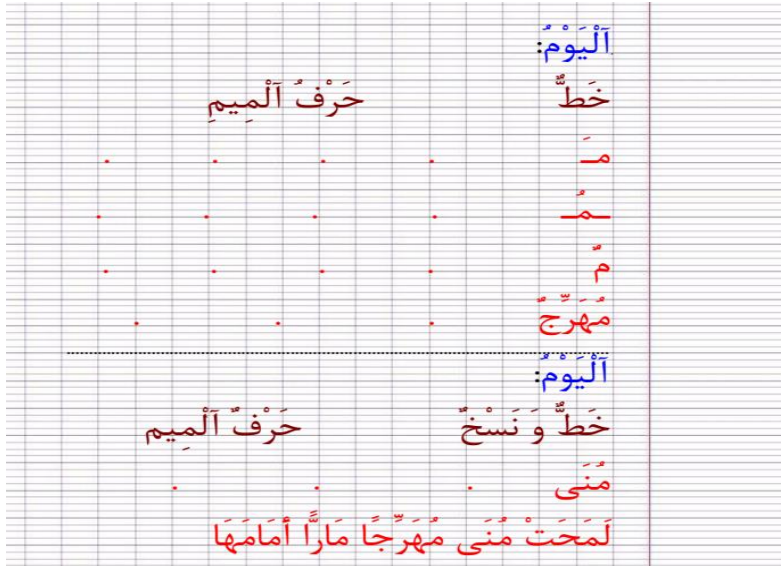 اَلْيَوْمُ:
خَطٌّ حَرْفُ اَلْمِيمِ
مـَ . . . .
ـمُـ . . . .
مٌ . . . .
مُهَرِّجٌ . . .
اَلْيَوْمُ:
خَطٌّ وَ نَسْخٌ حَرْفٌ اَلْمِيم
مُنَى . . .
لَمَحَتْ مُنَى مُهَرِّجًا مَارًّا أَمَامَهَا